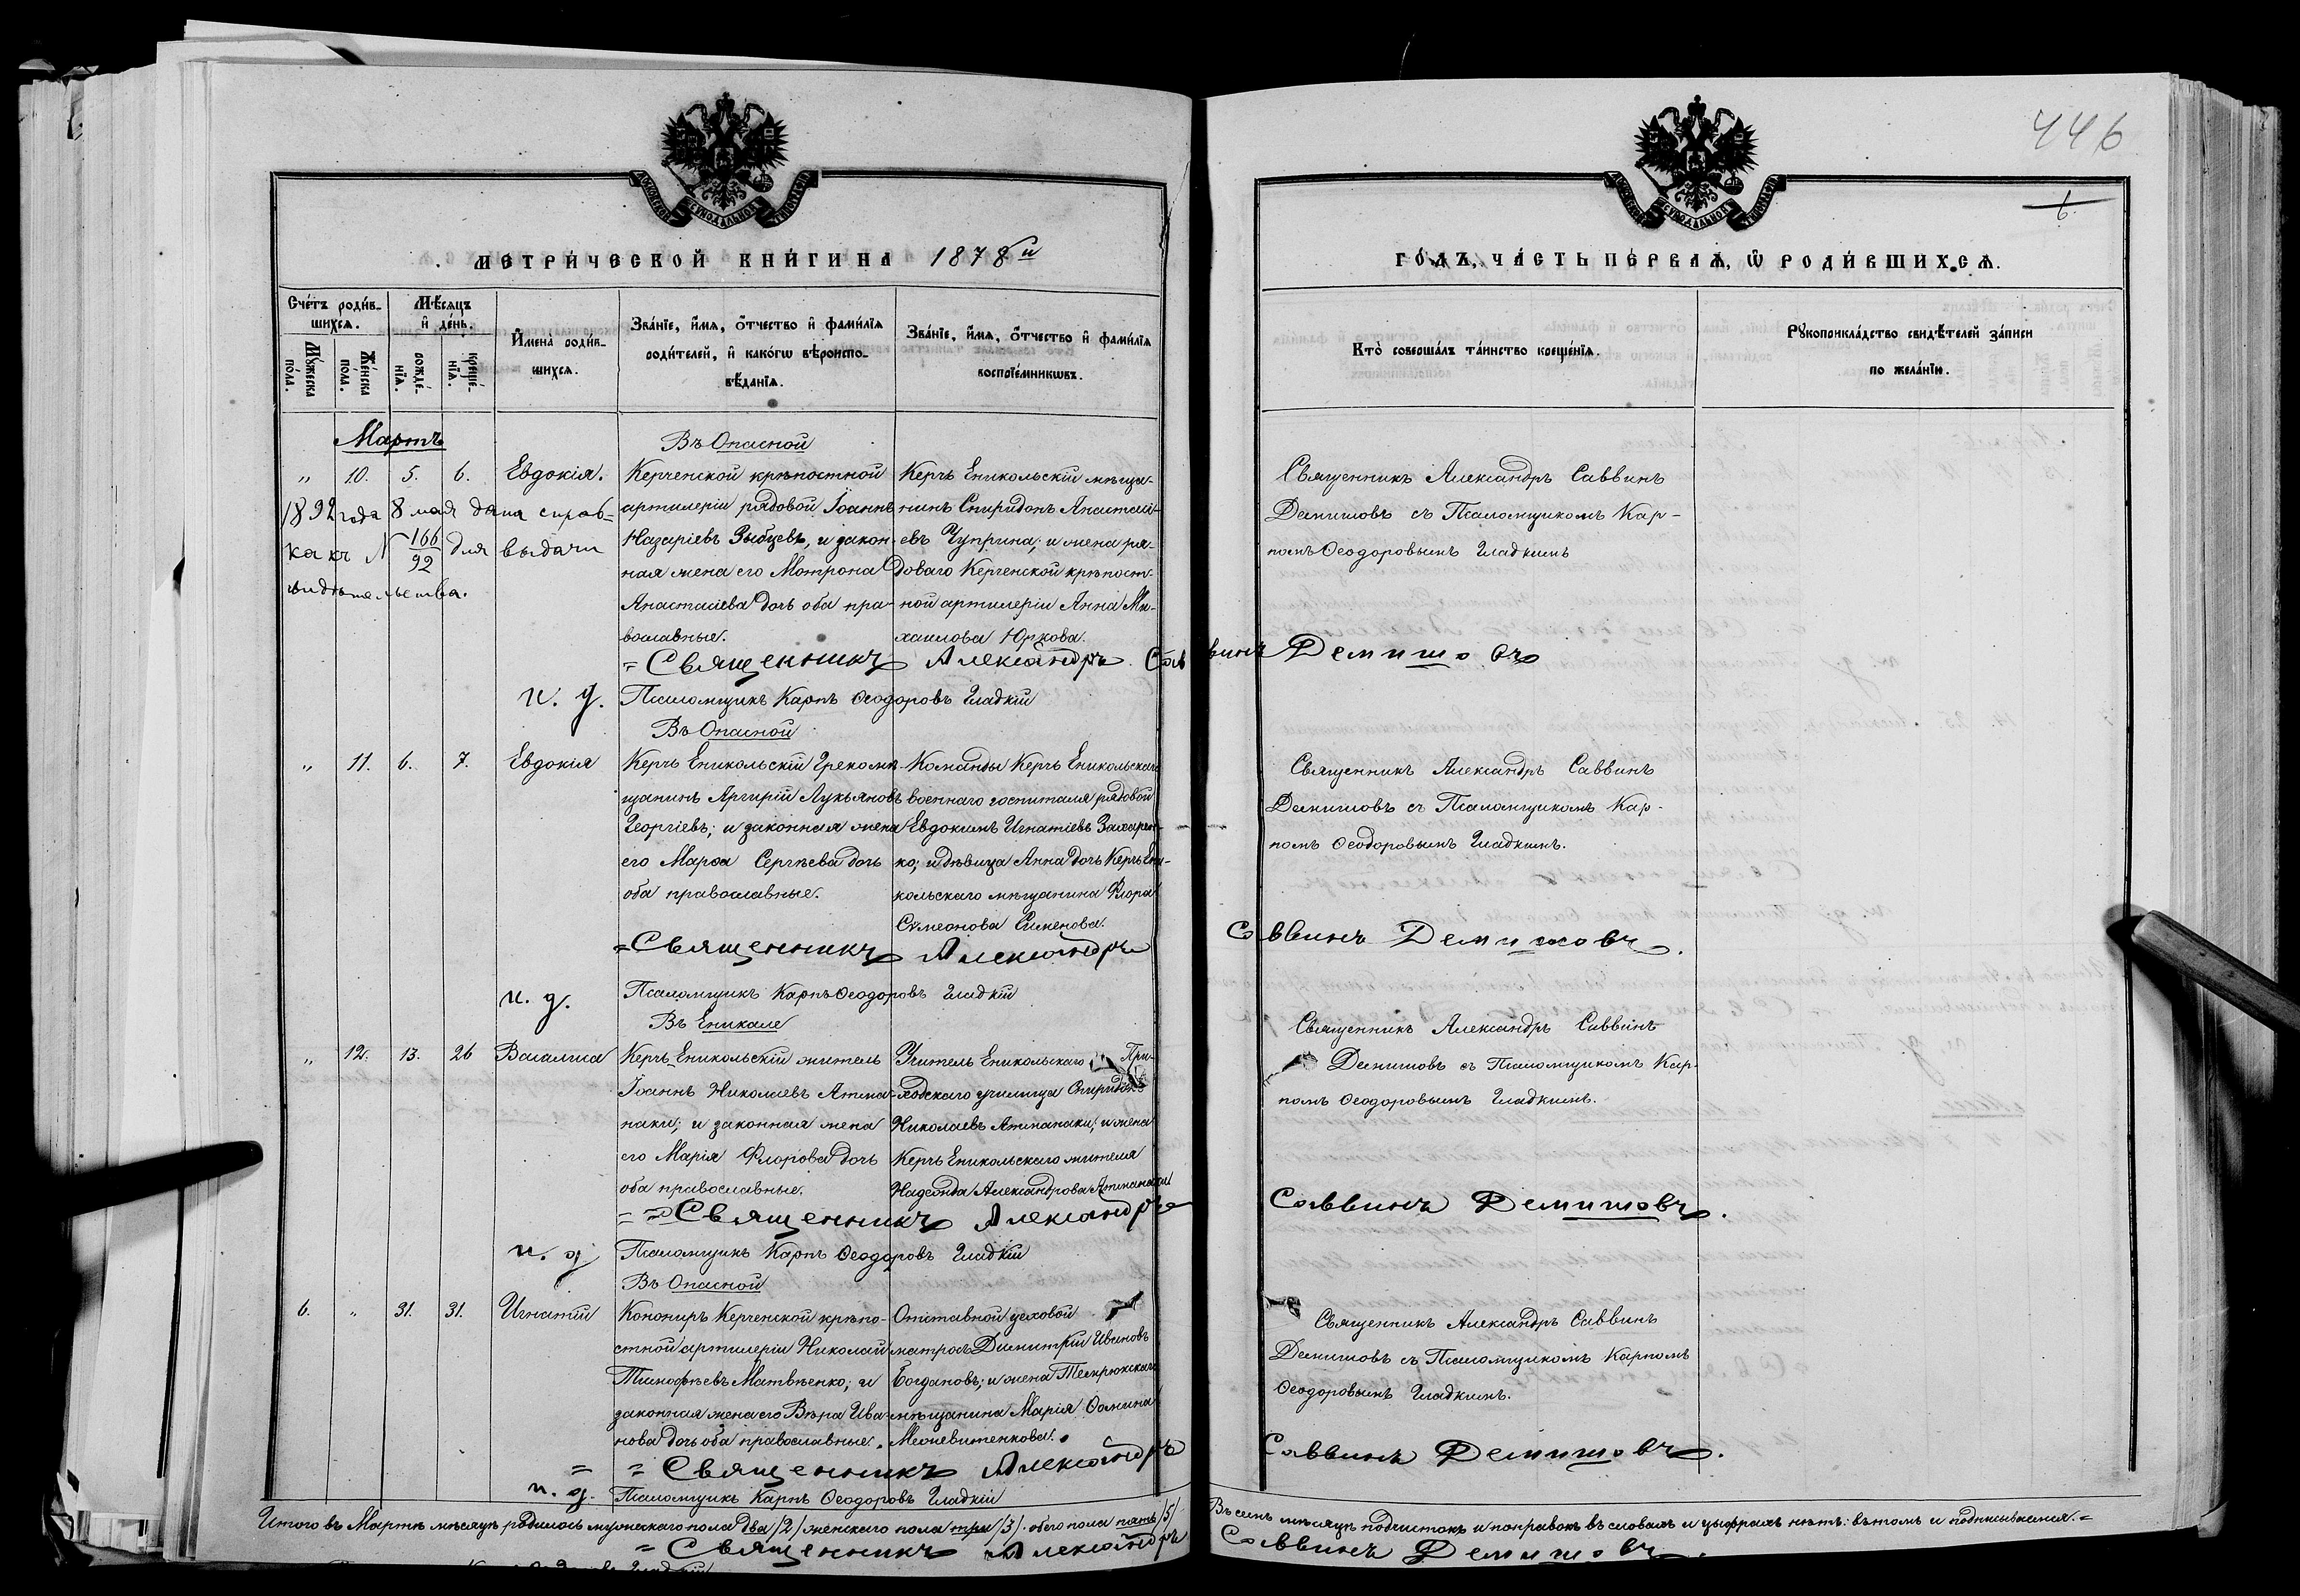 446
6.
МЕТРИ́ЧЕСКОЙ КНИ́ГИ НА 1878й
ГО́ДЪ, ЧА́СТЬ ПЕ́РВАѦ, Ѡ҆ РОДИ́ВШИХСѦ.
Сче́тъ роди́в-
шихсѧ.
Мѣ́сяцъ
и҆ де́нь.
Му́жеска
по́ла.
Же́нска
по́ла.
рожде́-
нїѧ.
креще́-
нїѧ.
И҆мена̀ роди́в-
шихсѧ.
Зва́нїе, и҆́мѧ, ѻ҆́тчество и҆ фамилїѧ
роди́телей, и҆ како́гѡ вѣроиспо-
вѣ́данїѧ.
Зва́нїе, и҆́мѧ, ѻ҆́тчество и҆ фамилїѧ
воспрїе́мникѡвъ.
Кто̀ соверша́лъ та́инство креще́нїѧ.
Рꙋкоприкла́дство свидѣ́телей за́писи
по жела́нїю.
Мартъ
Въ Опасной
„ 10. 5. 6. Евдокія.
Керченской крѣпостной
артилеріи рядовой Іоаннъ
Назаріевъ Зыбцевъ, и закон-
ная жена его Мотрона
Анастасіева дочь оба пра-
вославные.
Керчь Еникольскій мѣща-
нинъ Спиридонъ Анастасі-
евъ Чуприна; и жена ря-
доваго Керченской крѣпост-
ной артилеріи Анна Ми-
хаилова Юркова.
Священникъ Александръ Саввинъ
Демишовъ съ Псаломщикомъ Кар-
помъ Ѳеодоровымъ Гладкимъ
1892 года 8 мая дана справ-
ка къ № 166/92 для выдачи
свидѣтельства.
= Священникъ Александръ Саввинъ Демишовъ
и. д. Псаломщикъ Карпъ Ѳеодоровъ Гладкій
Въ Опасной
„ 11. 6. 7. Евдокія
Керчь Еникольскій Грекомѣ-
щанинъ Аргирій Лукьяновъ
Георгіевъ; и законная жена
его Марѳа Сергѣева дочь
оба православные.
Команды Керчь Еникольскаго
военнаго госпиталя рядовой
Евдокимъ Игнатіевъ Захарен-
ко; и дѣвица Анна дочь Керчь Ени-
кольскаго мѣщанина Флора
Сѵмеонова Сименова.
Священникъ Александръ Саввинъ
Демишовъ съ Псаломщикомъ Кар-
помъ Ѳеодоровымъ Гладкимъ.
= Священникъ Александръ Саввинъ Демишовъ.
и. д. Псаломщикъ Карпъ Ѳеодоровъ Гладкій
Въ Еникале
„ 12. 13. 26 Васалиса
Керчь Еникольскій житель
Іоаннъ Николаевъ Атма-
наки; и законная жена
его Марія Флорова дочь
оба православные.
Учитель Еникольскаго При-
ходскаго училища Спиридонъ
Николаевъ Атманаки; и жена
Керчь Еникольскаго жителя
Надежда Александрова Атманаки
Священникъ Александръ Саввинъ
Демишовъ съ Псаломщикомъ Кар-
помъ Ѳеодоровымъ Гладкимъ.
= Священникъ Александръ Саввинъ Демишовъ.
и. д. Псаломщикъ Карпъ Ѳеодоровъ Гладкій
Въ Опасной
6. „ 31. 31. Игнатій
Кононіръ Керченской крѣпо-
стной артилеріи Николай
Тимофѣевъ Матвѣенко; и
законная жена его Вѣра Ива-
нова дочь оба православные.
Отставной цеховой
матросъ Димитрій Ивановъ
Богдановъ; и жена Темрюкскаго
мѣщанина Марія Ѳомина
Священникъ Александръ Саввинъ
Демишовъ съ Псаломщикомъ Карпомъ
Ѳеодоровымъ Гладкимъ.
= Священникъ Александръ Саввинъ Демишовъ.
и. д. Псаломщикъ Карпъ Ѳеодоровъ Гладкій
Итого въ Мартѣ мѣсяцѣ родилось мужескаго пола два /2/ женскаго пола три /3/. обоего пола пять /5/
Въ семъ мѣсяцѣ подчистокъ и поправокъ въ словахъ и цыфрахъ нѣтъ: въ томъ и подписываемся. =
= Священникъ Александръ Саввинъ Демишовъ.